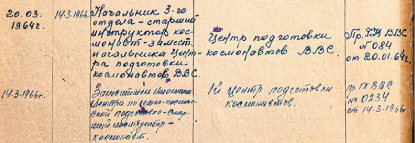 20.03.
1964г.
14.3.1966
Начальник 3-го
отдела - старший
инструктор кос-
монавт - замест.
начальника Цент-
ра подготовки
космонавтов ВВС.
Центр подготовки
космонавтов ВВС.
Пр. ВВС
№ 084
от 20.01.64г.
14.3.1966г.
Заместитель Начальника
Центра по
ской подготовке -
инструктор -
космонавт.
1й Центр подготовки
космонавтов.
пр. ГК ВВС
№ 0234
от 14.3.1966